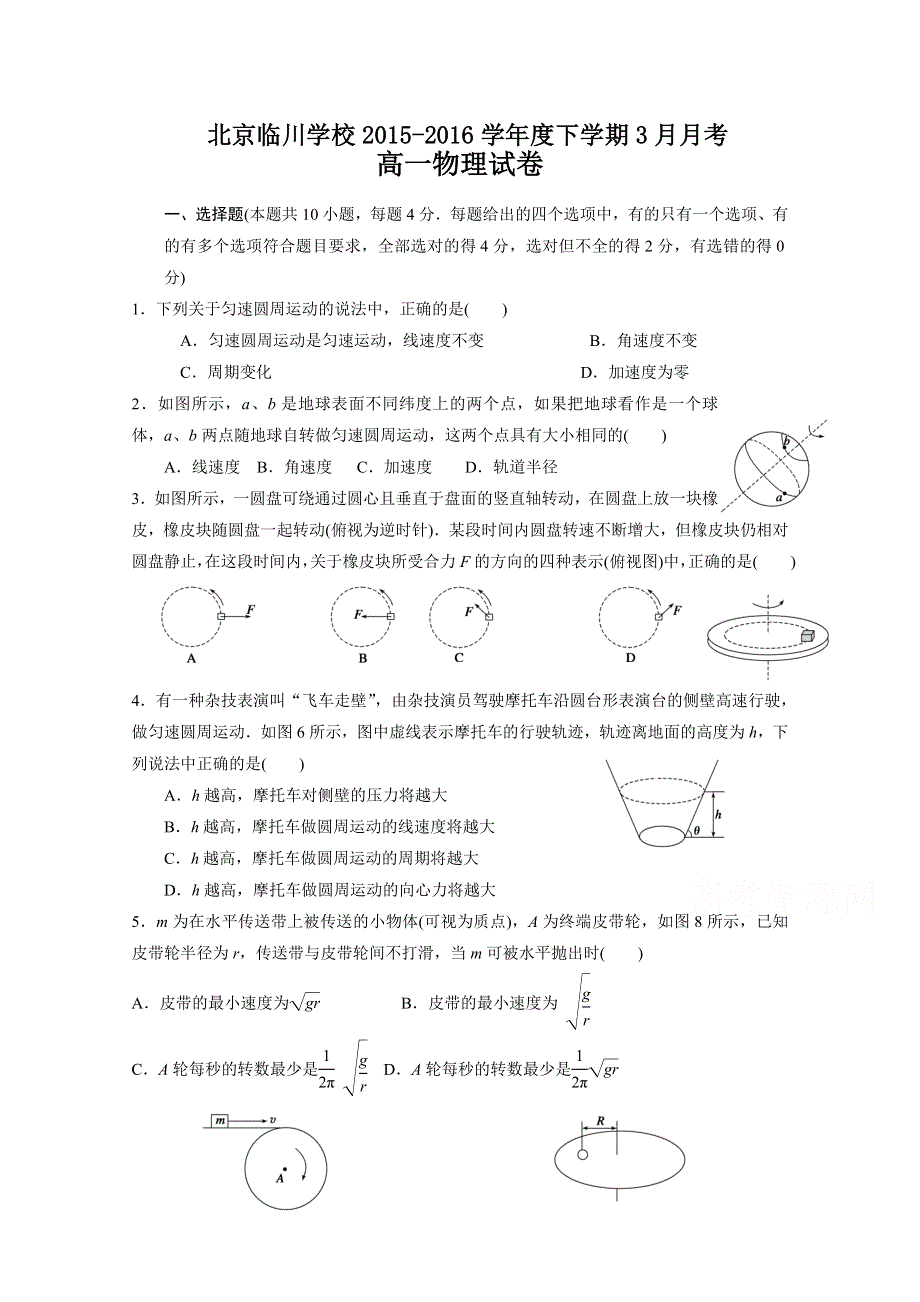 北京临川学校2015-2016学年度下学期3月月考
高一物理试卷
一、选择题(本题共10小题，每题4分．每题给出的四个选项中，有的只有一个选项、有
的有多个选项符合题目要求，全部选对的得4分，选对但不全的得2分，有选错的得0
分)
1．下列关于匀速圆周运动的说法中，正确的是(　　)
A．匀速圆周运动是匀速运动，线速度不变 B．角速度不变
C．周期变化 D．加速度为零
2．如图所示，a、b是地球表面不同纬度上的两个点，如果把地球看作是一个球
体，a、b两点随地球自转做匀速圆周运动，这两个点具有大小相同的(　　)
A．线速度 B．角速度 C．加速度 D．轨道半径
b
a
3．如图所示，一圆盘可绕通过圆心且垂直于盘面的竖直轴转动，在圆盘上放一块橡
皮，橡皮块随圆盘一起转动(俯视为逆时针)．某段时间内圆盘转速不断增大，但橡皮块仍相对
圆盘静止，在这段时间内，关于橡皮块所受合力F的方向的四种表示(俯视图)中，正确的是(　　)
F F F F
A B C D
4．有一种杂技表演叫“飞车走壁”，由杂技演员驾驶摩托车沿圆台形表演台的侧壁高速行驶，
做匀速圆周运动．如图6所示，图中虚线表示摩托车的行驶轨迹，轨迹离地面的高度为h，下
列说法中正确的是(　　)
A．h越高，摩托车对侧壁的压力将越大
B．h越高，摩托车做圆周运动的线速度将越大
C．h越高，摩托车做圆周运动的周期将越大
D．h越高，摩托车做圆周运动的向心力将越大
h
θ
高考资源网
5．m为在水平传送带上被传送的小物体(可视为质点)，A为终端皮带轮，如图8所示，已知
皮带轮半径为r，传送带与皮带轮间不打滑，当m可被水平抛出时(　　)
A．皮带的最小速度为√gr B．皮带的最小速度为 √(g/r)
C．A轮每秒的转数最少是1/2π √(g/r) D．A轮每秒的转数最少是1/2π √gr
m v
A
R